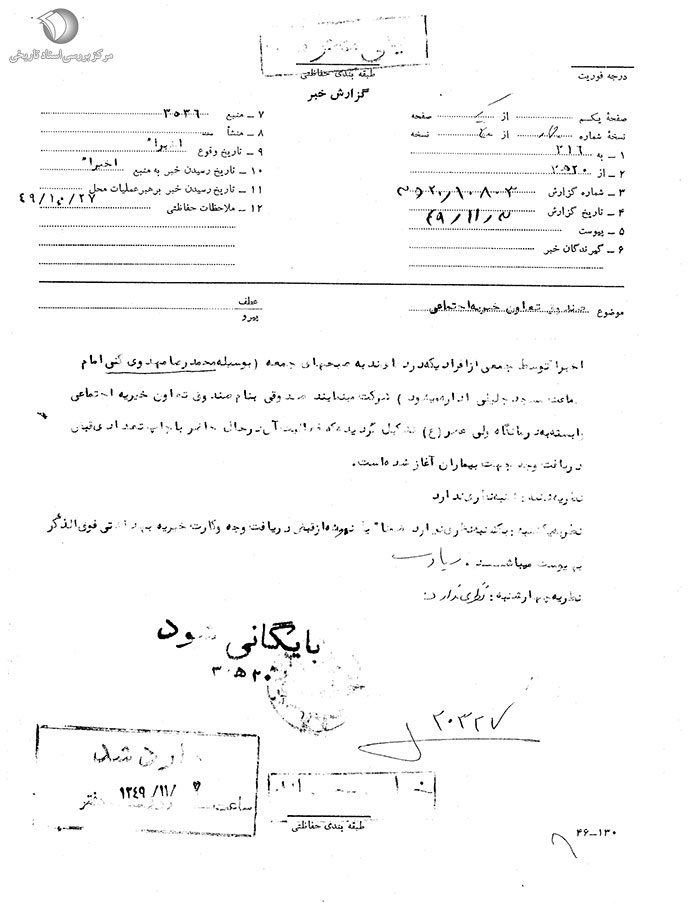 مرکز بررسی اسناد تاریخی
طبقه بندی حفاظتی
گزارش خبر
درجه فوریت
صفحهٔ یکم از یک صفحه
نسخهٔ شماره از نسخه
۱ – به ۳۱۶
۲ – از ۲۰ه۳
۳ – شماره گزارش ۲۰/۱۰۸۰۲ه۳
۴ – تاریخ گزارش ۴۹/۱۱/
۵ – پیوست
۶ – گیرندگان خبر
۷ – منبع ۳۵۳۶
۸ – منشأ
۹ – تاریخ وقوع اخیراً
۱۰ – تاریخ رسیدن خبر به منبع اخیراً
۱۱ – تاریخ رسیدن خبر برهبرعملیات محل ۴۹/۱۰/۲۷
۱۲ – ملاحظات حفاظتی
موضوع صندوق تعاون خیریه اجتماعی
عطف
پیرو
اخیراً توسط جمعی از افرادیکه در ندبه صبحهای جمعه (بوسیله محمدرضا مهدوی کنی امام
جماعت مسجد جلیلی اداره میشود) شرکت مینمایند صندوقی بنام صندوق تعاون خیریه اجتماعی
وابسته به درمانگاه ولی عصر(ع) تشکیل گردیده که فعالیت آن در حال حاضر با چاپ تعدادی قبض
دریافت وجه جهت بیماران آغاز شده است.
نظریه شنبه : شنبه نظری ندارد
نظریه یکشنبه : یکشنبه نظری ندارد ضمناً یک نمونه از قبض دریافت وجه وکارت خیریه بهداشتی فوق الذکر
به پیوست میباشد.
نظریه چهارشنبه : نظری ندارد.
بایگانی شود
۲۰ه۳
۲۰۳۲۷
وارد شد
۱۳۴۹/۱۱/۷
ساعت روز دفتر
طبقه بندی حفاظتی
۴۶–۱۳۰